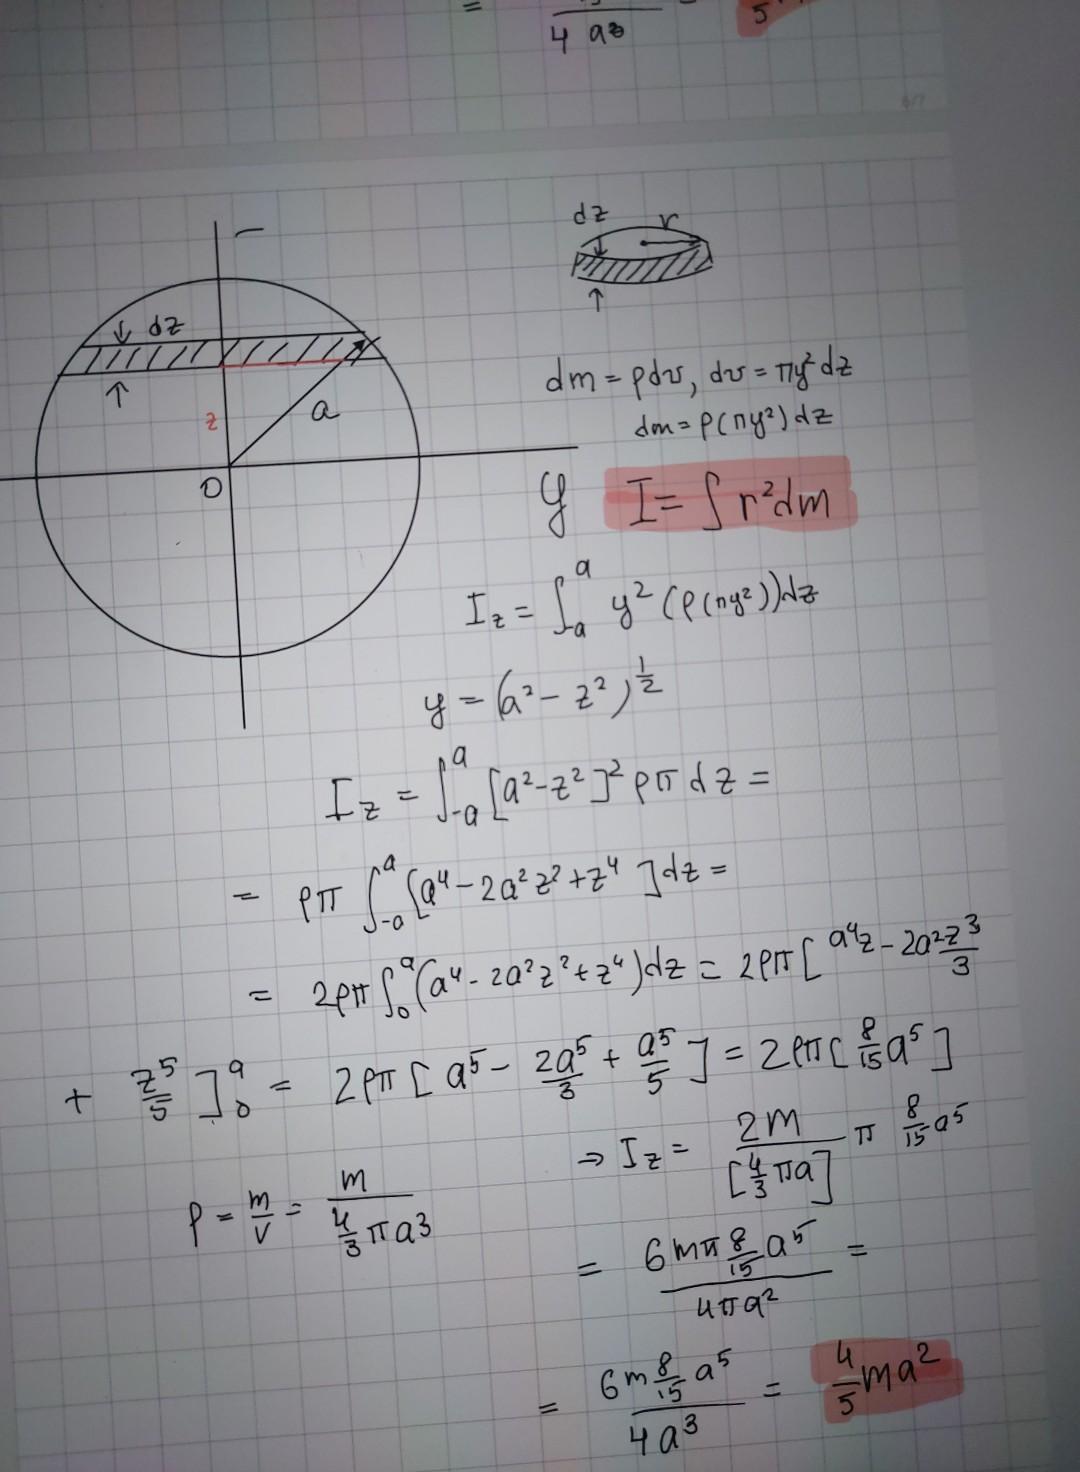 =
4 a3
5
6/7
dz
r
dz
a
z
O
dm = ρdv, dv = πy²dz
dm = ρ(πy²)dz
y
I = ∫ r²dm
I_z = ∫_{-a}^{a} y² (ρ(πy²))dz
y = (a² - z²)^{1/2}
I_z = ∫_{-a}^{a} [a² - z²]² ρπ dz =
= ρπ ∫_{-a}^{a} [a⁴ - 2a²z² + z⁴] dz =
= 2ρπ ∫_0^a (a⁴ - 2a²z² + z⁴) dz = 2ρπ [ a⁴z - 2a² z³/3
+ z⁵/5 ]_0^a = 2ρπ [ a⁵ - 2a⁵/3 + a⁵/5 ] = 2ρπ [ 8/15 a⁵ ]
⇒ I_z = 2m/[4/3 πa] π 8/15 a⁵
ρ = m/v = m/(4/3 πa³)
= 6mπ 8/15 a⁵ / 4πa² =
= 6m 8/15 a⁵ / 4a³ = 4/5 ma²